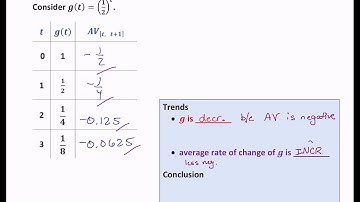 Consider g(t) = (1/2)^t.
t g(t) AV[t, t+1]
0 1 -1/2
1 1/2 -1/4
2 1/4 -0.125
3 1/8 -0.0625
Trends
• g is decr. b/c AV is negative
• average rate of change of g is INCR
less neg.
Conclusion